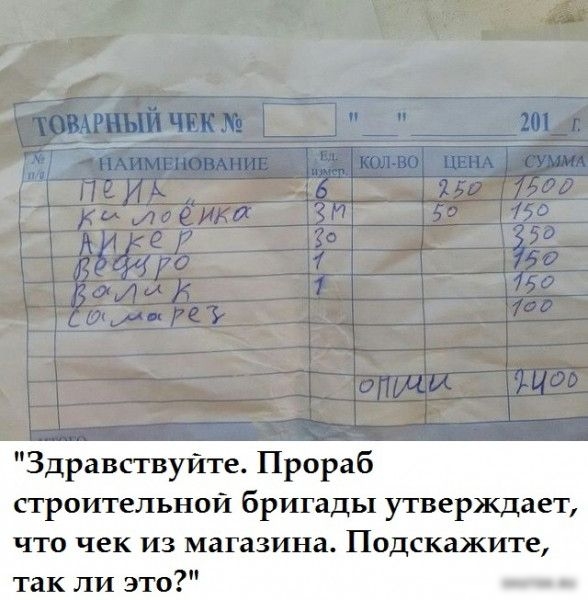 ТОВАРНЫЙ ЧЕК № " " 201 г.
№ п/п НАИМЕНОВАНИЕ Ед. измер. КОЛ-ВО ЦЕНА СУММА
ПЕНА 6 250 1500
Килоёнка 3М 50 150
АНКЕР 30 350
Ведуро 1 150
Валик 1 150
самарез 100
опши 2400
"Здравствуйте. Прораб
строительной бригады утверждает,
что чек из магазина. Подскажите,
так ли это?"